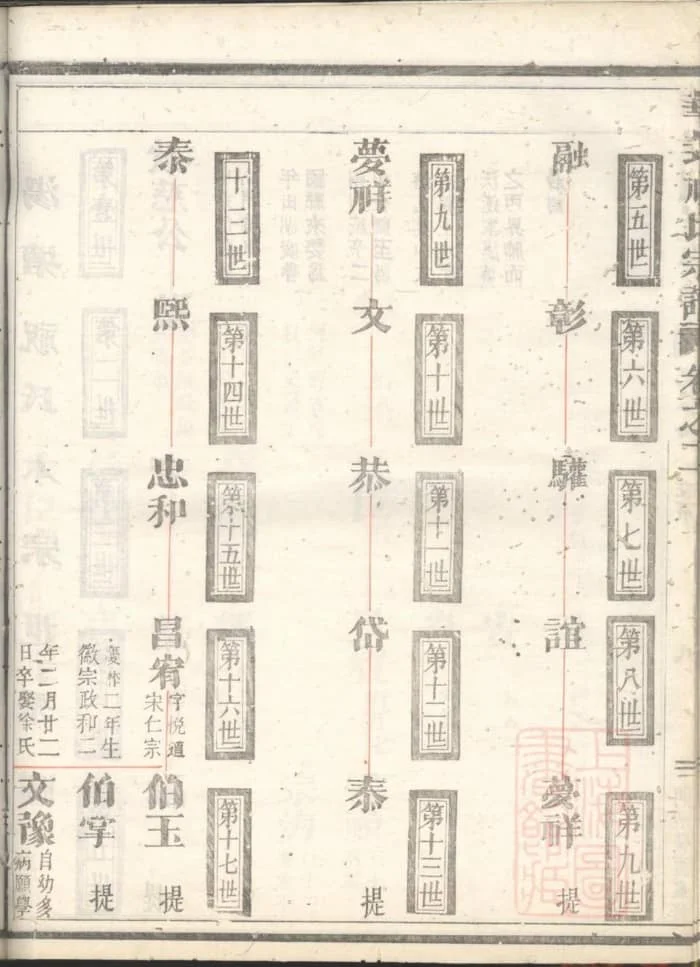 第五世
第六世
第七世
第八世
第九世
融
彰
驩
誼
夢祥 提
第九世
第十世
第十一世
第十二世
第十三世
夢祥
文
恭
岱
泰 提
十三世
第十四世
第十五世
第十六世
第十七世
泰
熙
忠和
昌宥 字悅道
宋仁宗
慶曆二年生
徽宗政和二
年二月廿二
日卒娶徐氏
伯玉 提
伯掌 提
文豫 自幼多
病願學